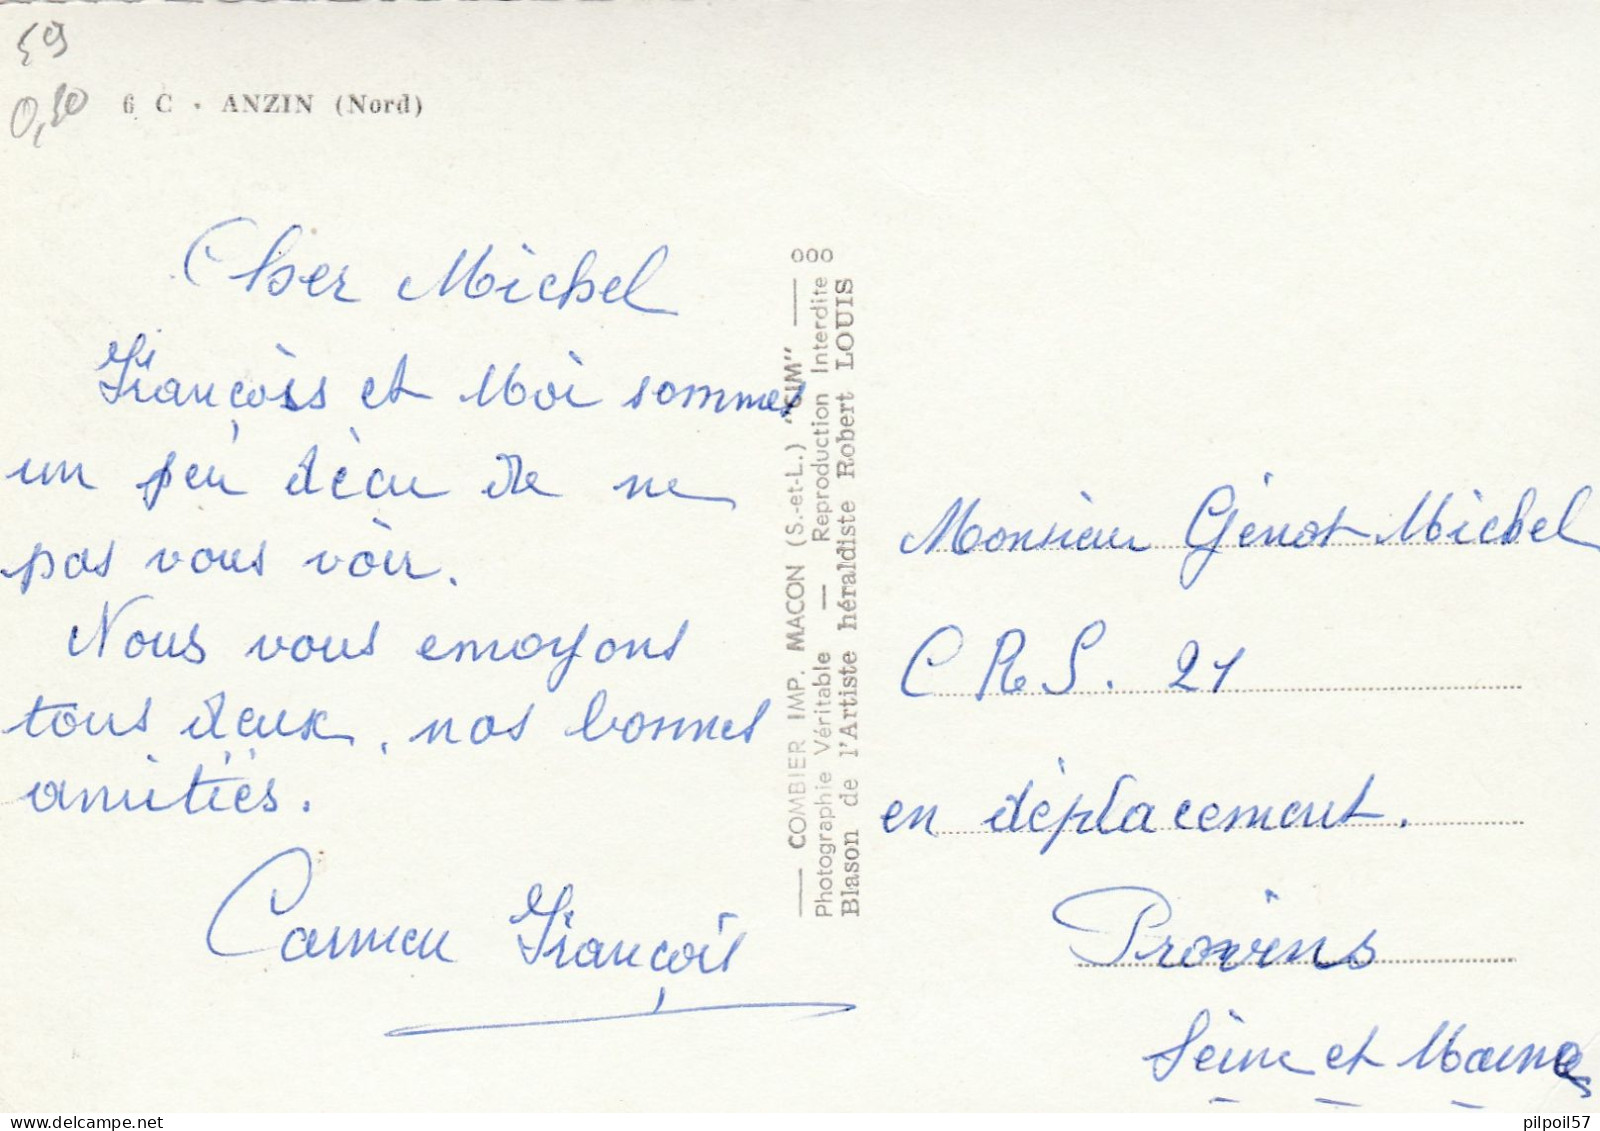 59
0,50
6 C - ANZIN (Nord)
Cher Michel
François et Moi sommes
un peu déçu de ne
pas vous voir.
Nous vous envoyons
tous deux, nos bonnes
amitiés.
Carmen François
COMBIER IMP. MACON (S.-et-L.) "CIM" ooo
Photographie Véritable — Reproduction Interdite
Blason de l'Artiste héraldiste Robert LOUIS
Monsieur Génot Michel
C R S. 21
en déplacement.
Provins
Seine et Marne
delcampe.net
pilpoil57